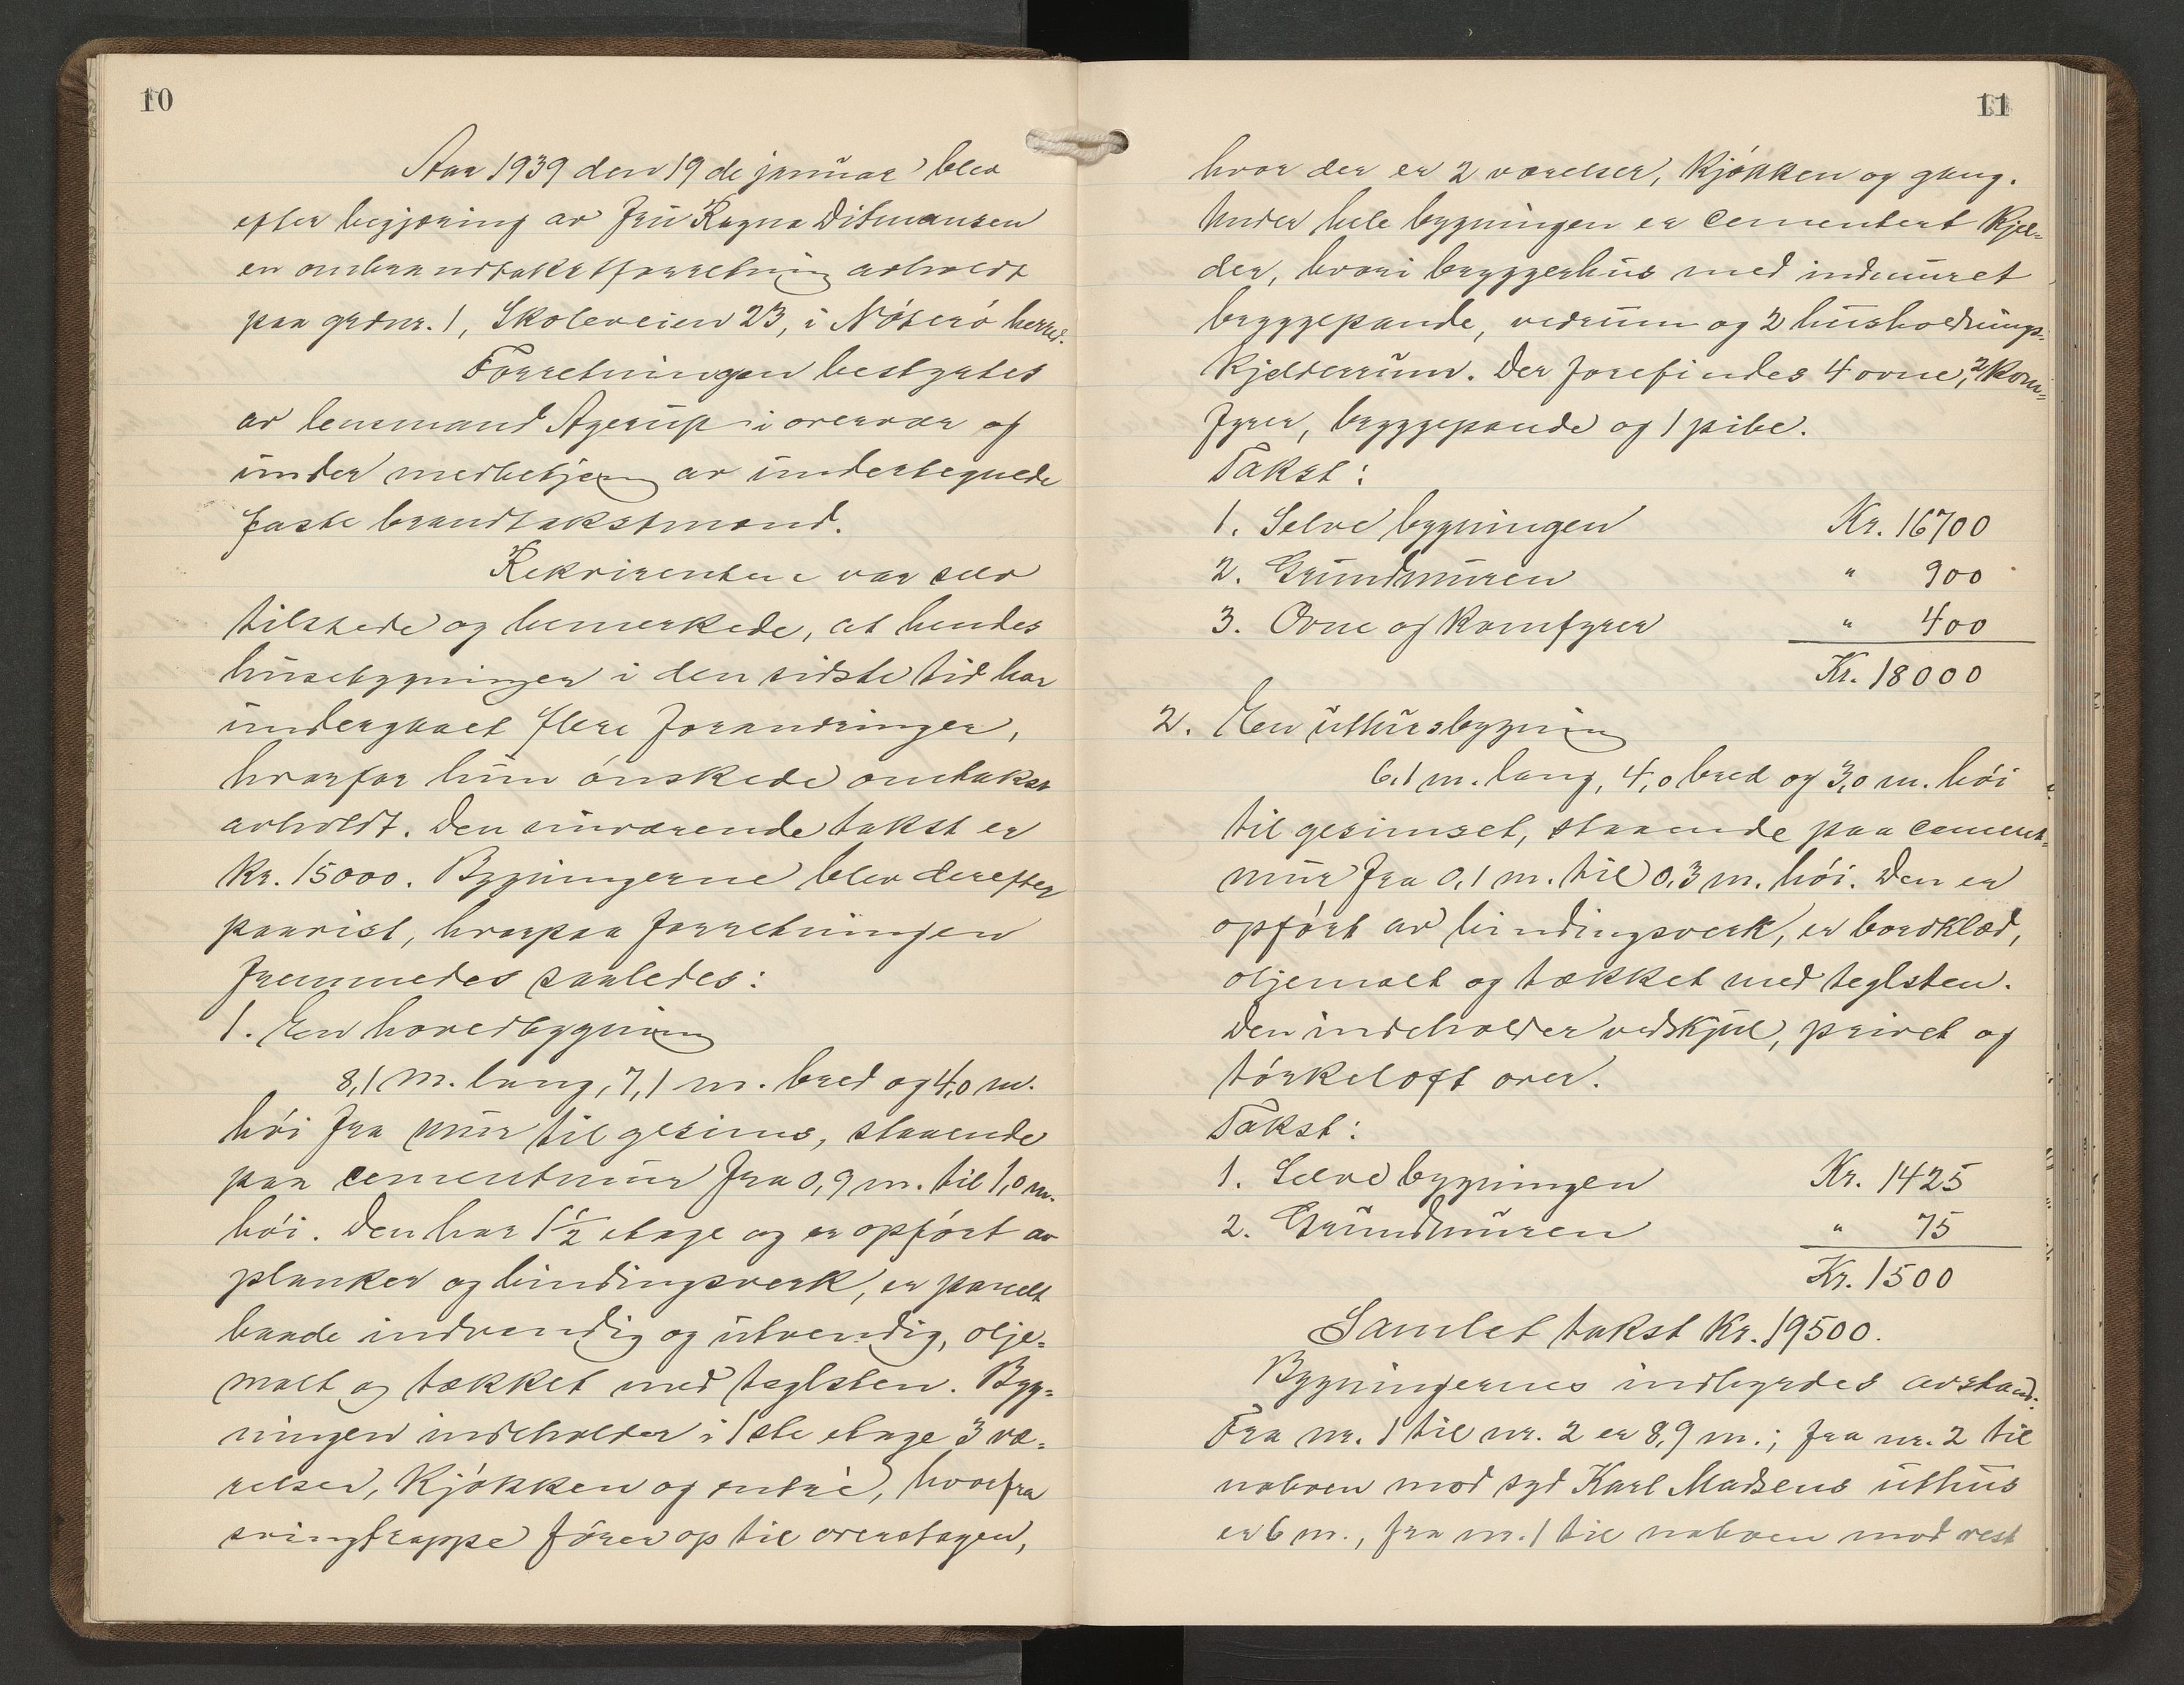 10
Aar 1939 den 19de januar blev
efter begjæring av Fru Ragna Ditmansen
en ombrandtakstforretning avholdt
paa grdnr. 1, Skoleveien 23, i Nøterø herred.
Forretningen bestyrtes
av lensmand Agerup i overvær og
under medbetjening av undertegnede
faste brandtakstmænd.
Rekvirenten var selv
tilstede og bemerkede, at hendes
husebygninger i den sidste tid har
undergaaet flere forandringer,
hvorfor hun ønskede omtakst
avholdt. Den nuværende takst er
Kr. 15000. Bygningerne blev derefter
paavist, hvorpaa forretningen
fremmedes saaledes:
1. En hovedbygning
8,1 m. lang, 7,1 m. bred og 4,0 m.
høi fra mur til gesims, staaende
paa cementmur fra 0,9 m. til 1,0 m.
høi. Den har 1 1/2 etage og er opført av
planker og bindingsverk, er panelt
baade indvendig og utvendig, olje=
malt og tækket med teglsten. Byg=
ningen indeholder i 1ste etage 3 væ=
relser, kjøkken og entré, hvorfra
svingtrappe fører op til overetagen,
11
hvor der er 2 værelser, kjøkken og gang.
Under hele bygningen er cementert kjel=
der, hvori bryggerhus med indmuret
bryggepande, vedrum og 2 husholdnings=
kjelderrum. Der forefindes 4 ovne, 2 kom=
fyrer, bryggepande og 1 pibe.
Takst:
1. Selve bygningen Kr. 16700
2. Grundmuren " 900
3. Ovne og komfyrer " 400
Kr. 18000
2. En uthusbygning
6,1 m. lang, 4,0 bred og 3,0 m. høi
til gesimset, staaende paa cement=
mur fra 0,1 m. til 0,3 m. høi. Den er
opført av bindingsverk, er bordklæd,
oljemalt og tækket med teglsten.
Den indeholder vedskjul, privet og
tørkeloft over.
Takst:
1. Selve bygningen Kr. 1425
2. Grundmuren " 75
Kr. 1500
Samlet takst Kr. 19500.
Bygningernes indbyrdes avstand:
Fra nr. 1 til nr. 2 er 8,9 m.; fra nr. 2 til
naboen mod syd Karl Madsens uthus
er 6 m., fra nr. 1 til naboen mod vest